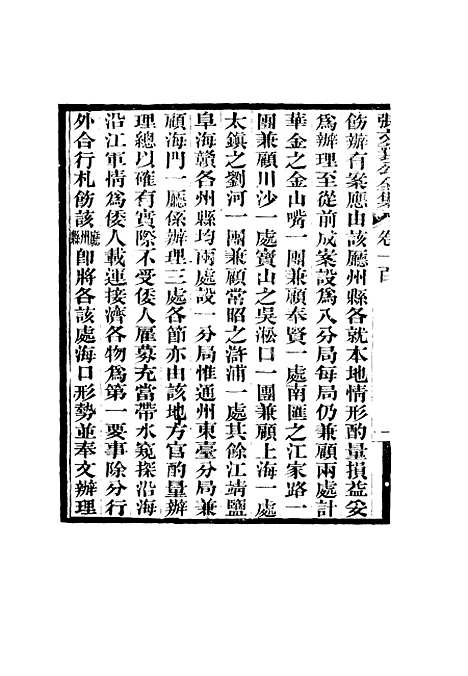 張文襄公全集 卷一百
飭辦有案應由該廳州縣各就本地情形酌量損益妥
爲辦理至從前成案設爲八分局每局仍兼顧兩處計
華金之金山嘴一團兼顧奉賢一處南匯之江家路一
團兼顧川沙一處寶山之吳淞口一團兼顧上海一處
太鎭之劉河一團兼顧常昭之滸浦一處其餘江靖鹽
阜海贛各州縣均兩處設一分局惟通州東臺分局兼
顧海門一廳係辦理三處各節亦由該地方官酌量辦
理總以確有實際不受倭人雇募充當帶水窺探沿海
沿江軍情爲倭人載運接濟各物爲第一要事除分行
外合行札飭該廳州縣卽將各該處海口形勢並奉文辦理